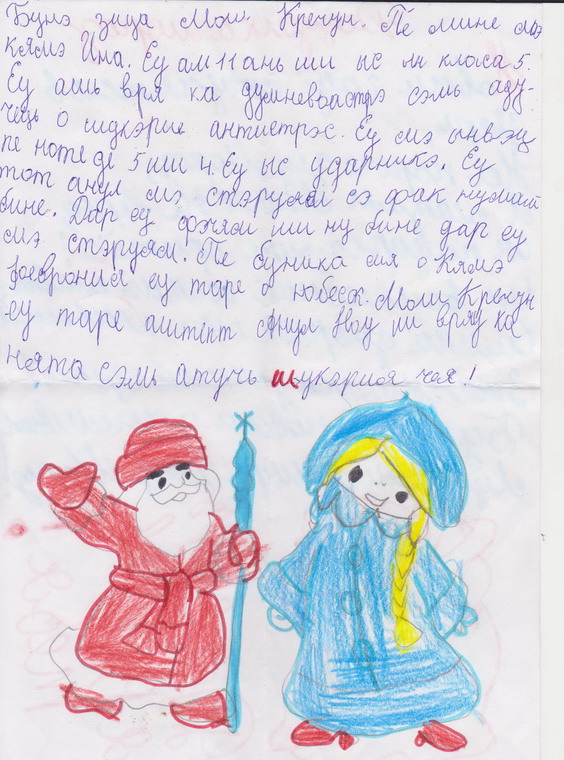 Бунэ зица Мош Кречун. Пе мине мэ
кямэ Ина. Еу ам 11 ань ши ыс ын класа 5.
Еу ашь вря ка думневоастрэ сэмь аду-
чець о шукэрие антистрэс. Еу мэ ынвэц
пе ноте де 5 ши 4. Еу ыс ударникэ. Еу
тот анул мэ стэруям сэ фак нумай
бине. Дар еу фэчям ши ну бине дар еу
мэ стэруям. Пе буника мя о кямэ
Февронит еу таре о юбеск. Мош Кречун
еу таре аштепт Анул Ноу ши вряу ка
ноята сэмь атучь шукэрия чея!